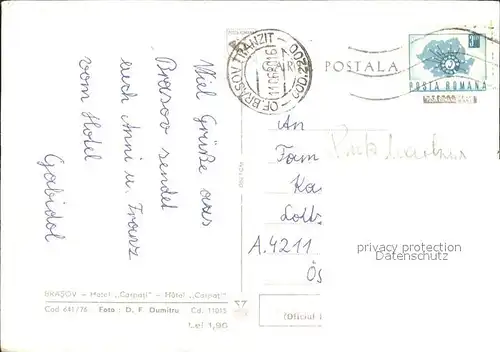 Viel Grüße aus
Brasov sendet
euch Anni u. Franz
vom Hotel
BRAȘOV – Hotel „Carpați" – Hôtel „Carpați"
Cod 641/76 Foto : D. F. Dumitru Cd. 11015
Lei 1,90
OF. BRAȘOV TRANZIT - COD 2200 -
POSTALA
POSTA ROMANA
An
Fam
Ka
Lott
A.4211
Ös
privacy protection
Datenschutz
(Oficiul